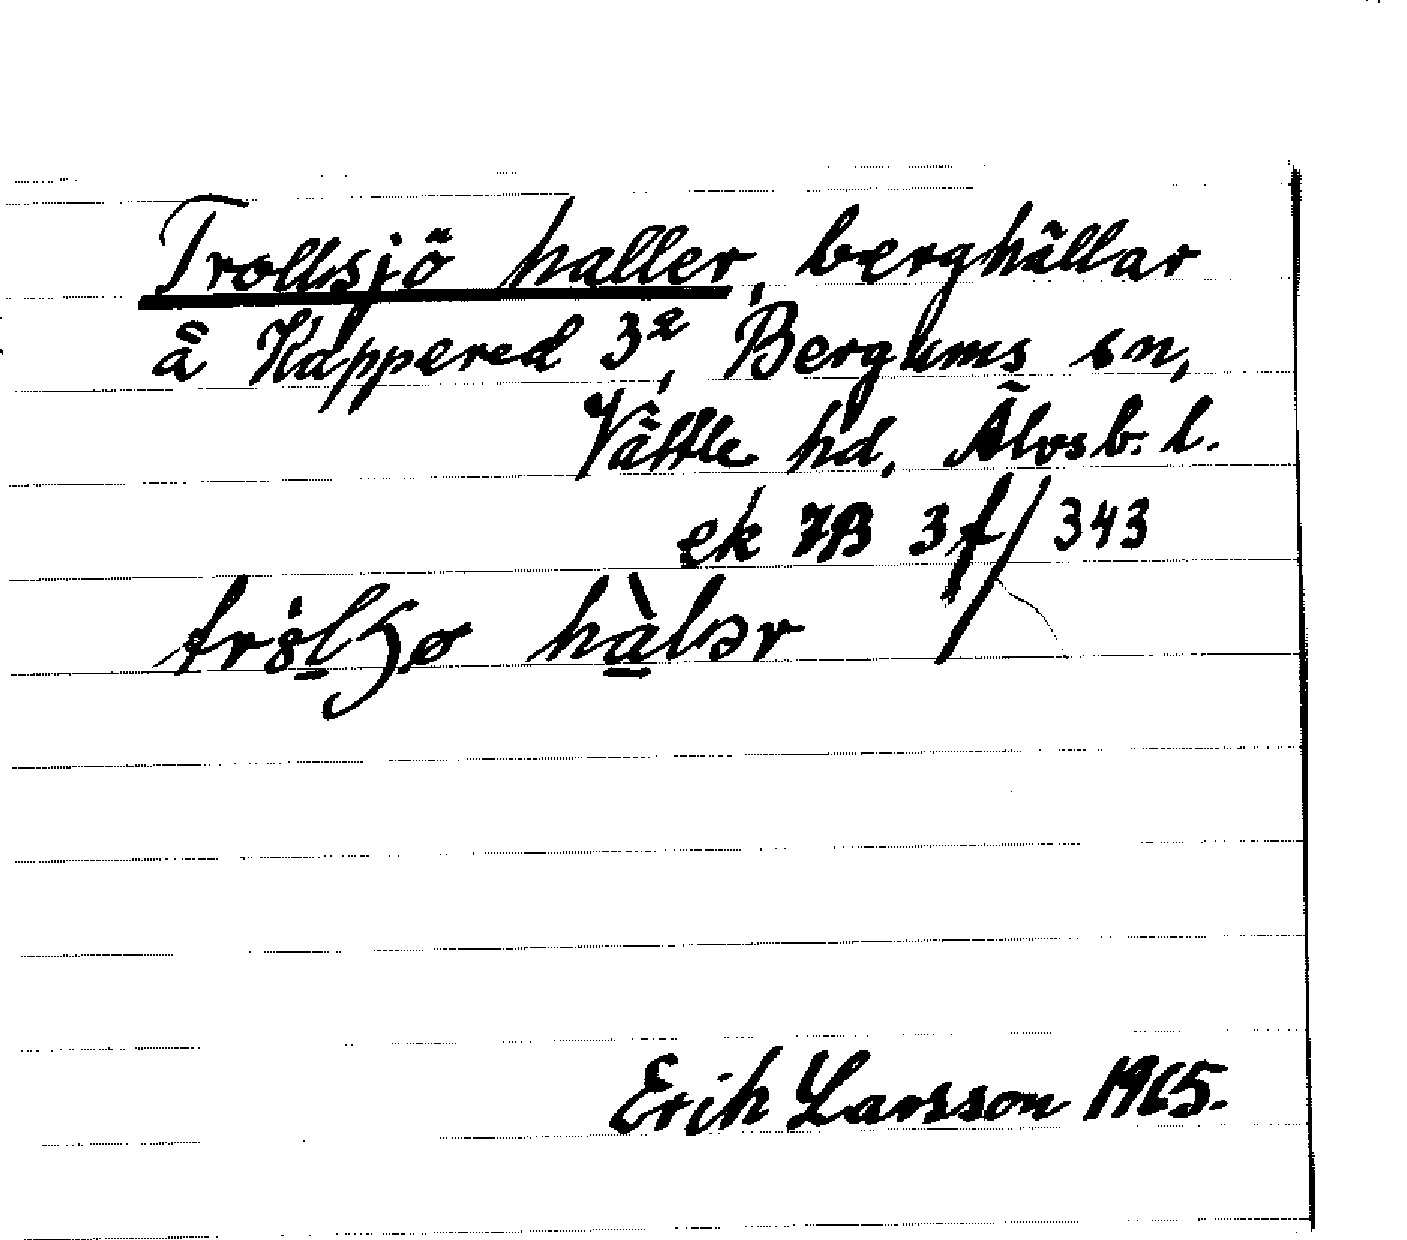 Trollsjö haller, berghällar
å Kappered 3², Bergums sn,
Vättle hd, Älvsb. l.
ek 7B 3f/343
hàlər
Erik Larsson 1965.